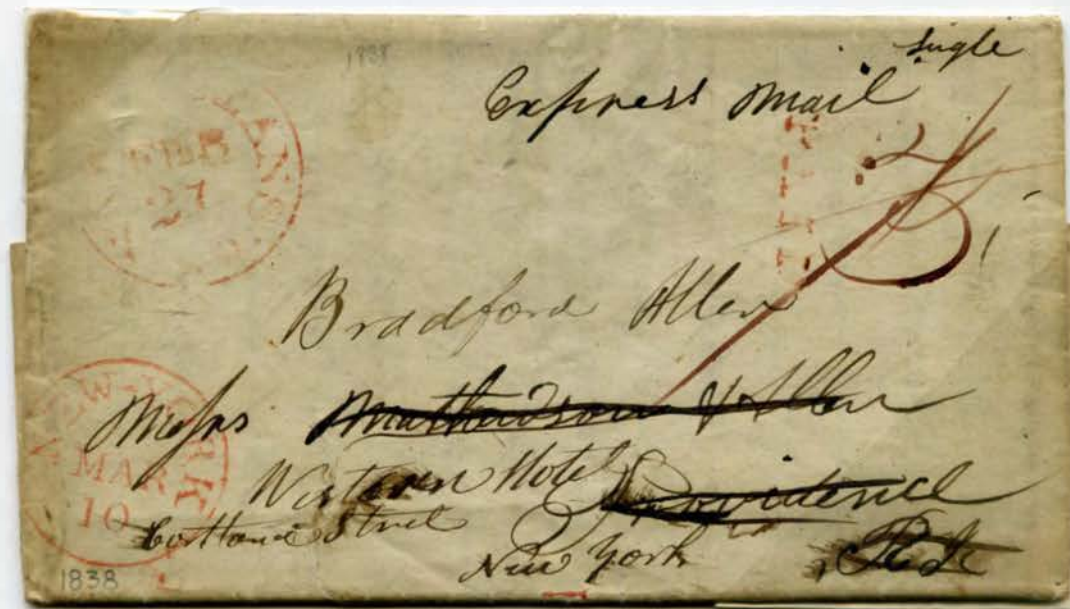 single
1838
Express Mail
FEB
27
PAID
Bradford Allen
Messrs Mathewson & Allen
Western Hotel Providence
Cortland Street
New York R.I.
NEW-YORK
MAR
10
1838